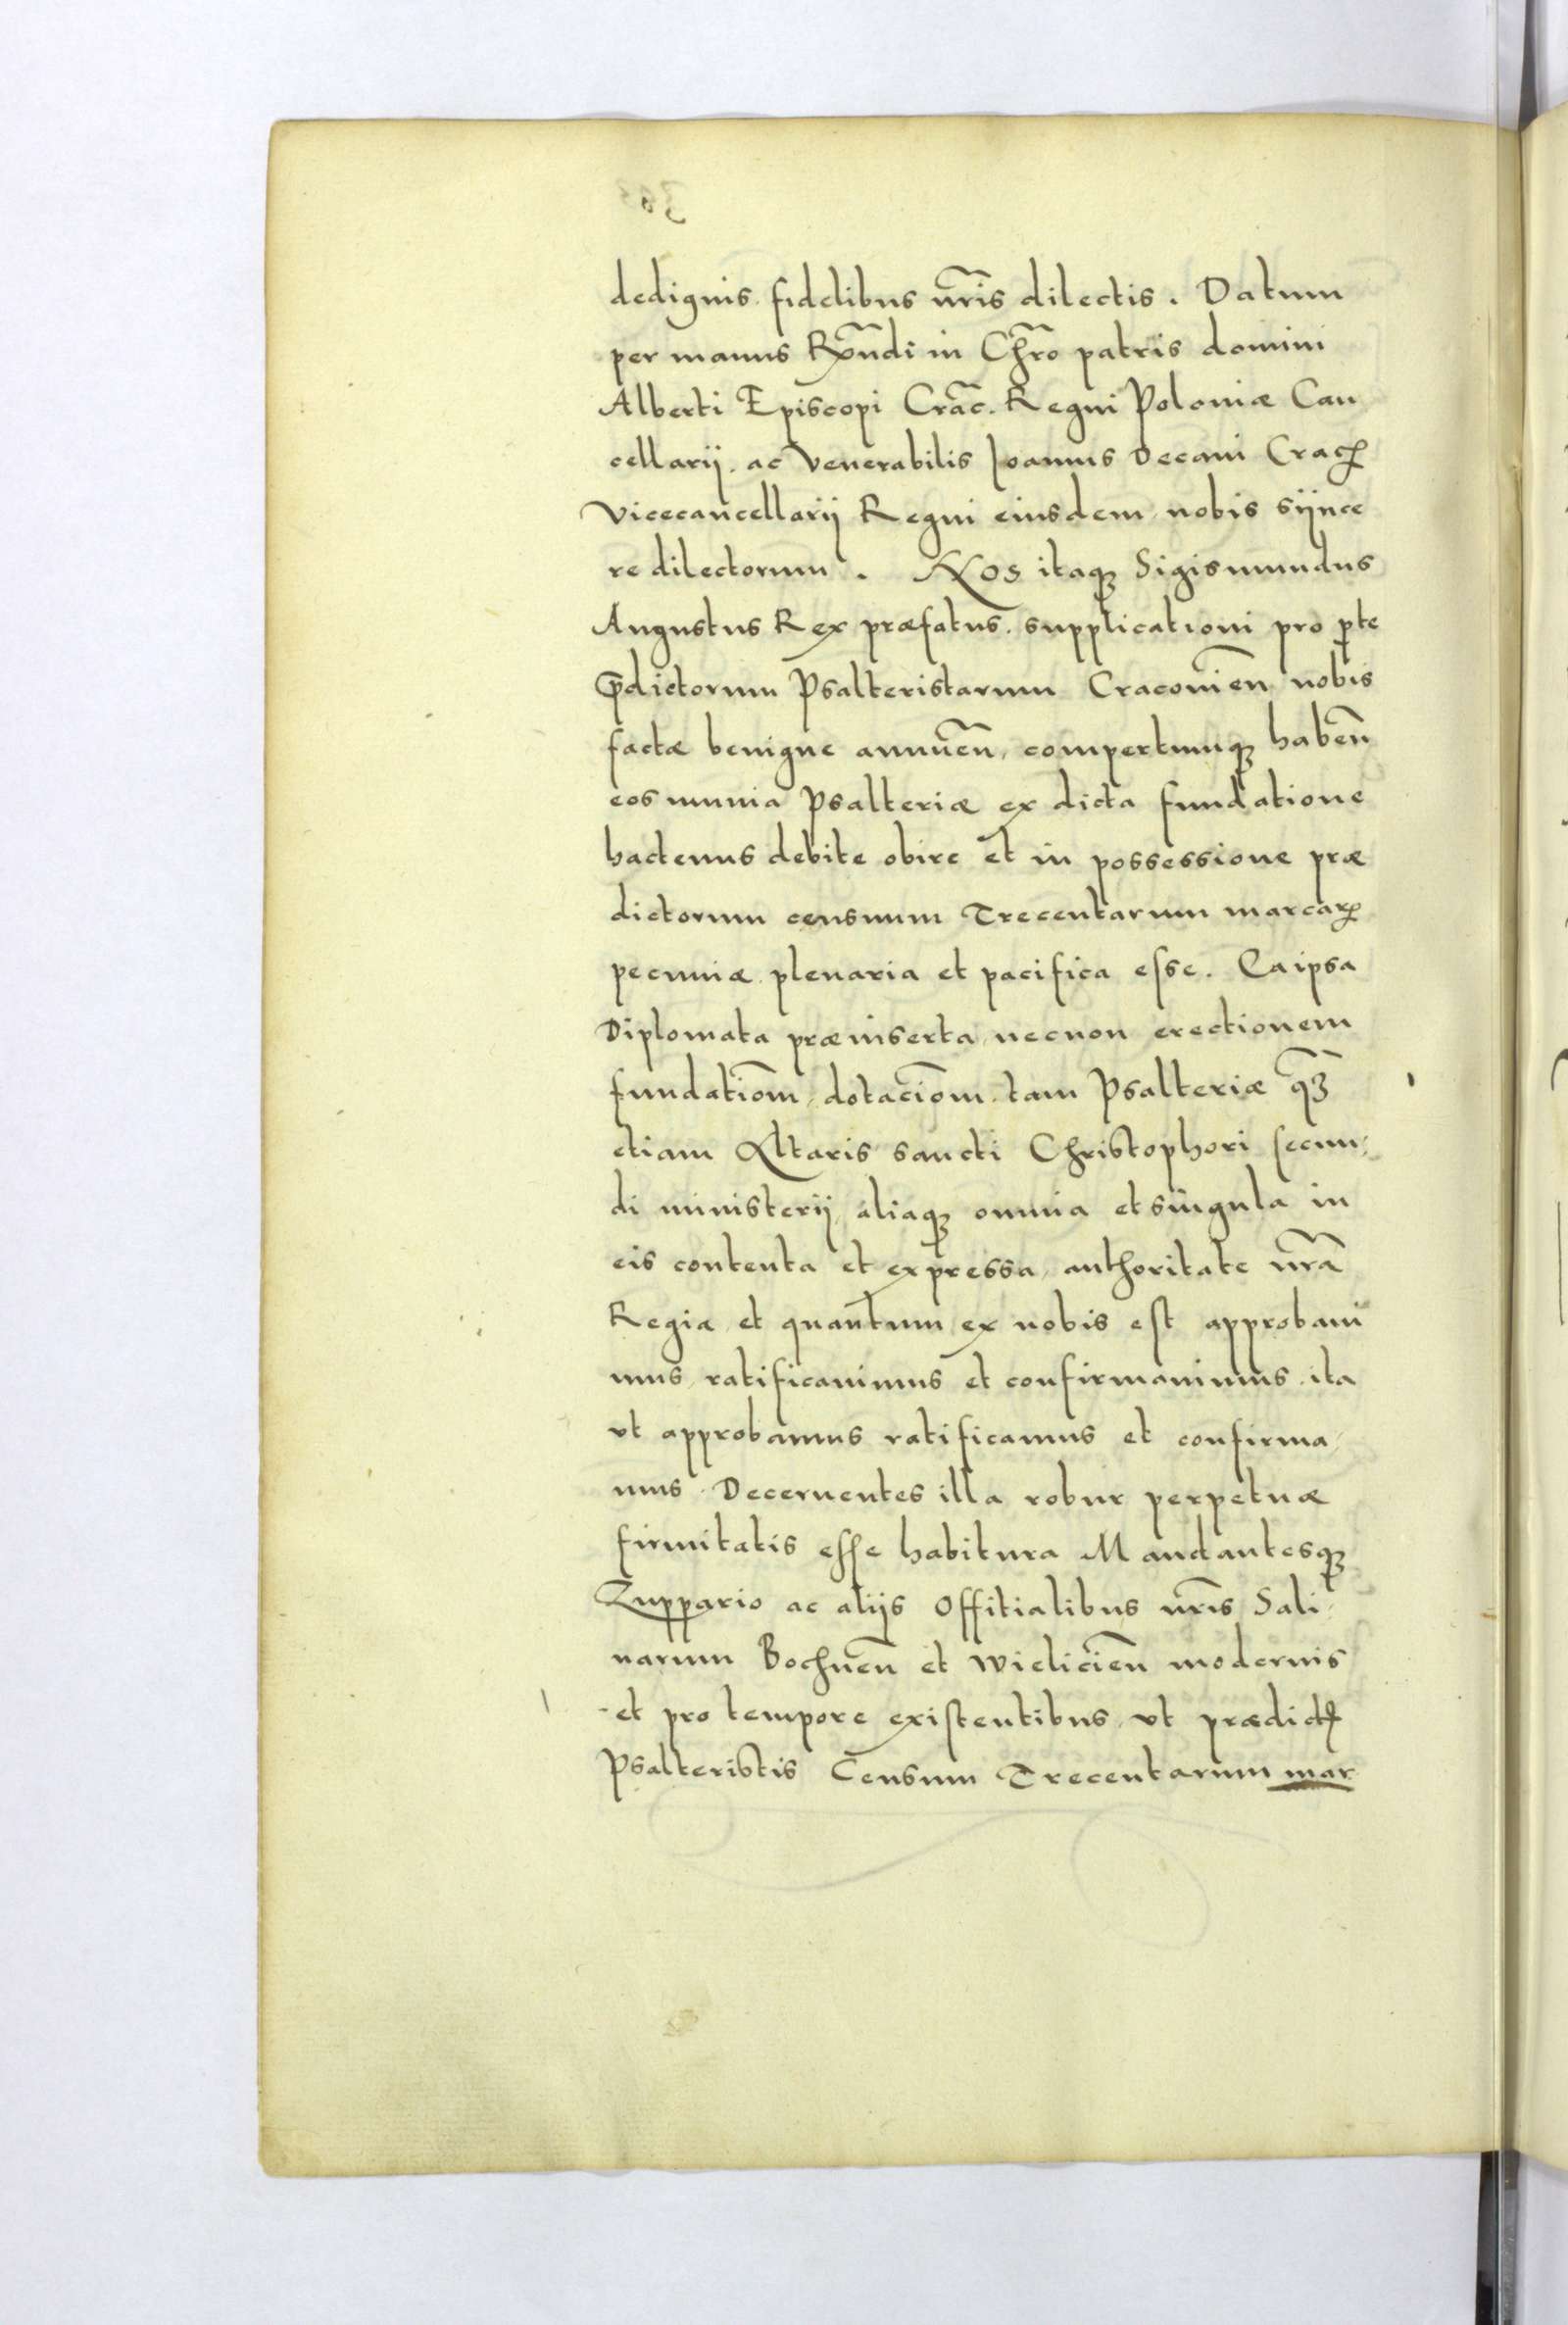 dedignis fidelibus nr̃is dilectis. Datum
per manus Rṽndi in Chr̃o patris domini
Alberti Episcopi Crac̃. Regni Poloniæ Can
cellarij. ac Venerabilis Joannis Decani Crac
Vicecancellarij Regni eiusdem nobis sijnce
re dilectorum. Nos itaqꝫ Sigismundus
Augustus Rex præfatus. supplicationi pro ꝑte
p̃dictorum Psalteristarum Craconieñ nobis
factæ benigne annueñ, compertumqꝫ habeñ
eos munia Psalteriæ ex dicta fundatione
hactenus debite obire et in possessione præ
dictorum censuum Trecentarum marcaꝝ
pecuniæ plenaria et pacifica esse. Ea ipsa
Diplomata præinserta, necnon erectionem
fundatiom̃, dotaciom̃. tam Psalteriæ q̃ꝫ
etiam Altaris sancti Christophori secun,
di ministerij, aliaqꝫ omnia et singula in
eis contenta et expressa, authoritate nr̃a
Regia et quantum ex nobis est approbaui
mus, ratificauimus et confirmauimus. ita
vt approbamus ratificamus et confirma,
mus. Decernentes illa robur perpetuæ
firmitatis esse habitura Mandantesqꝫ
Zuppario ac alijs Offitialibus nr̃is Sali,
narum Bochneñ et Wielicieñ modernis
et pro tempore existentibus, vt prædictꝭ
Psalteristis Censum Trecentarum mar